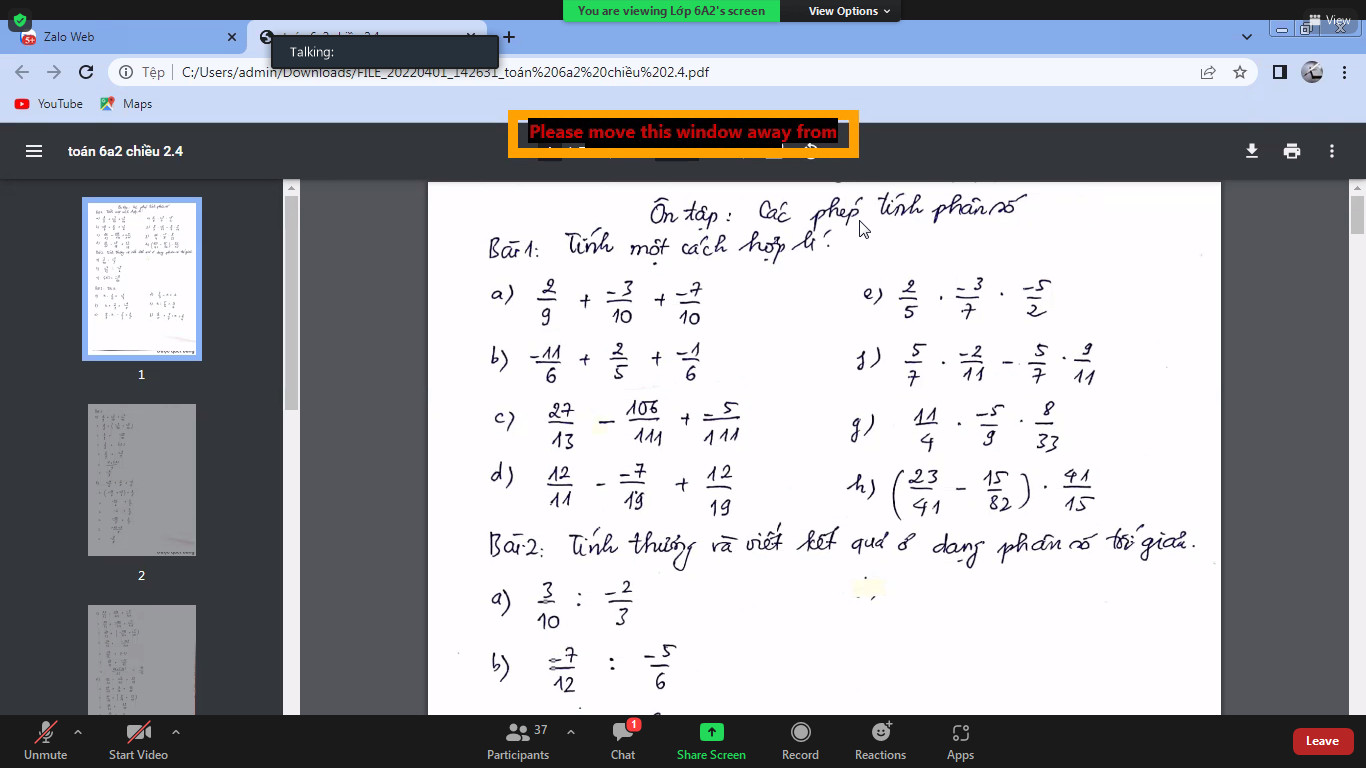 You are viewing Lớp 6A2's screen
View Options
View
Zalo Web
5+
Talking:
Tệp
C:/Users/admin/Downloads/FILE_20220401_142631_toán%206a2%20chiều%202.4.pdf
YouTube
Maps
Please move this window away from
toán 6a2 chiều 2.4
Ôn tập: Các phép tính phân số
Bài 1: Tính một cách hợp lí.
a) 2/9 + -3/10 + -7/10
e) 2/5 . -3/7 . -5/2
b) -11/6 + 2/5 + -1/6
f) 5/7 . -2/11 - 5/7 . 9/11
c) 27/13 - 106/111 + -5/111
g) 11/4 . -5/9 . 8/33
d) 12/11 - -7/19 + 12/19
h) (23/41 - 15/82) . 41/15
Bài 2: Tính thương và viết kết quả ở dạng phân số tối giản.
a) 3/10 : -2/3
b) -7/12 : -5/6
1
2
Unmute
Start Video
Participants
37
Chat
1
Share Screen
Record
Reactions
Apps
Leave